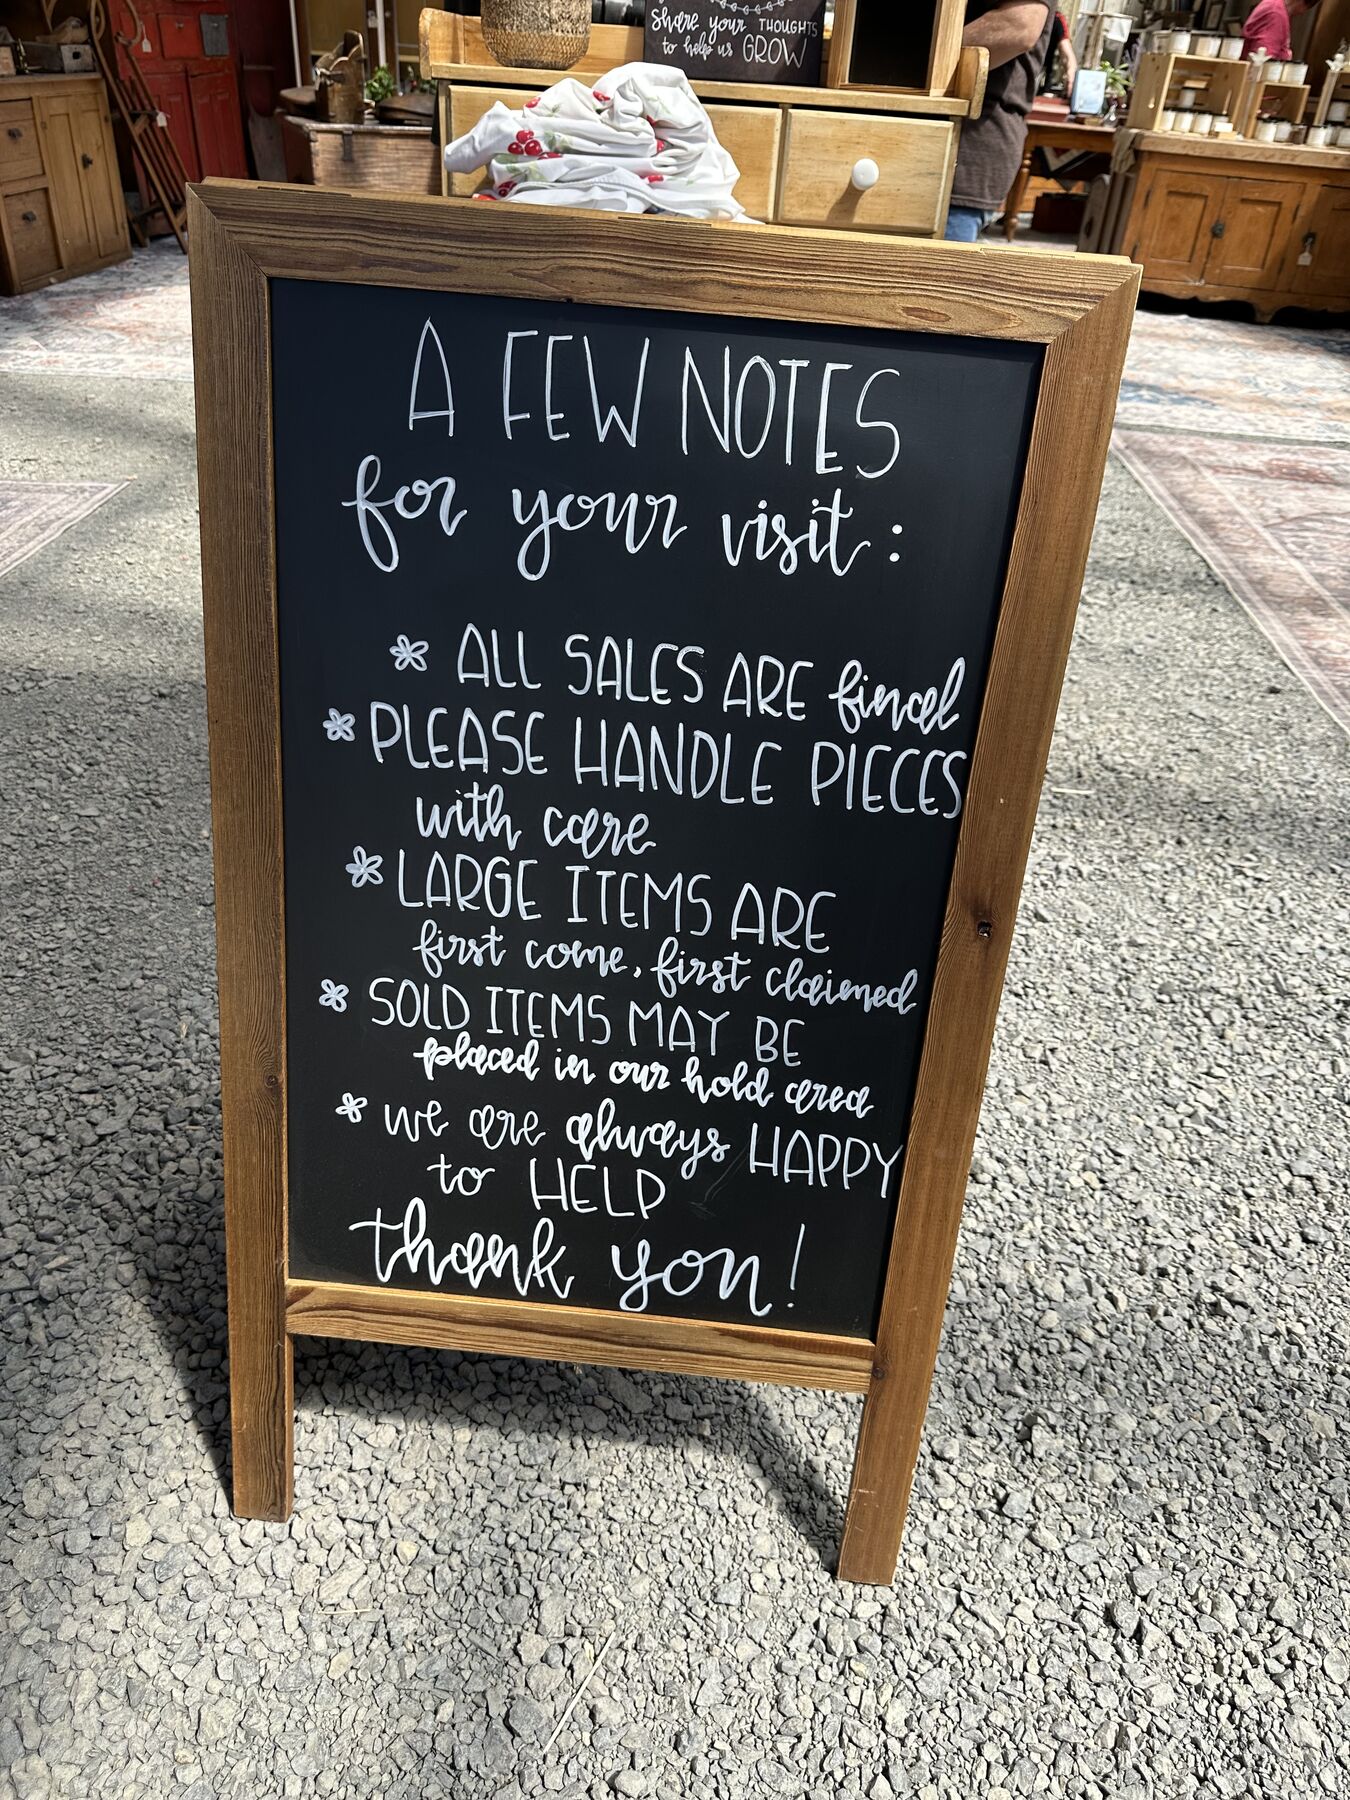 Share your THOUGHTS
to help us GROW
A FEW NOTES
for your visit:
* ALL SALES ARE final
* PLEASE HANDLE PIECES
with care
* LARGE ITEMS ARE
first come, first claimed
* SOLD ITEMS MAY BE
placed in our hold area
* we are always HAPPY
to HELP
thank you!